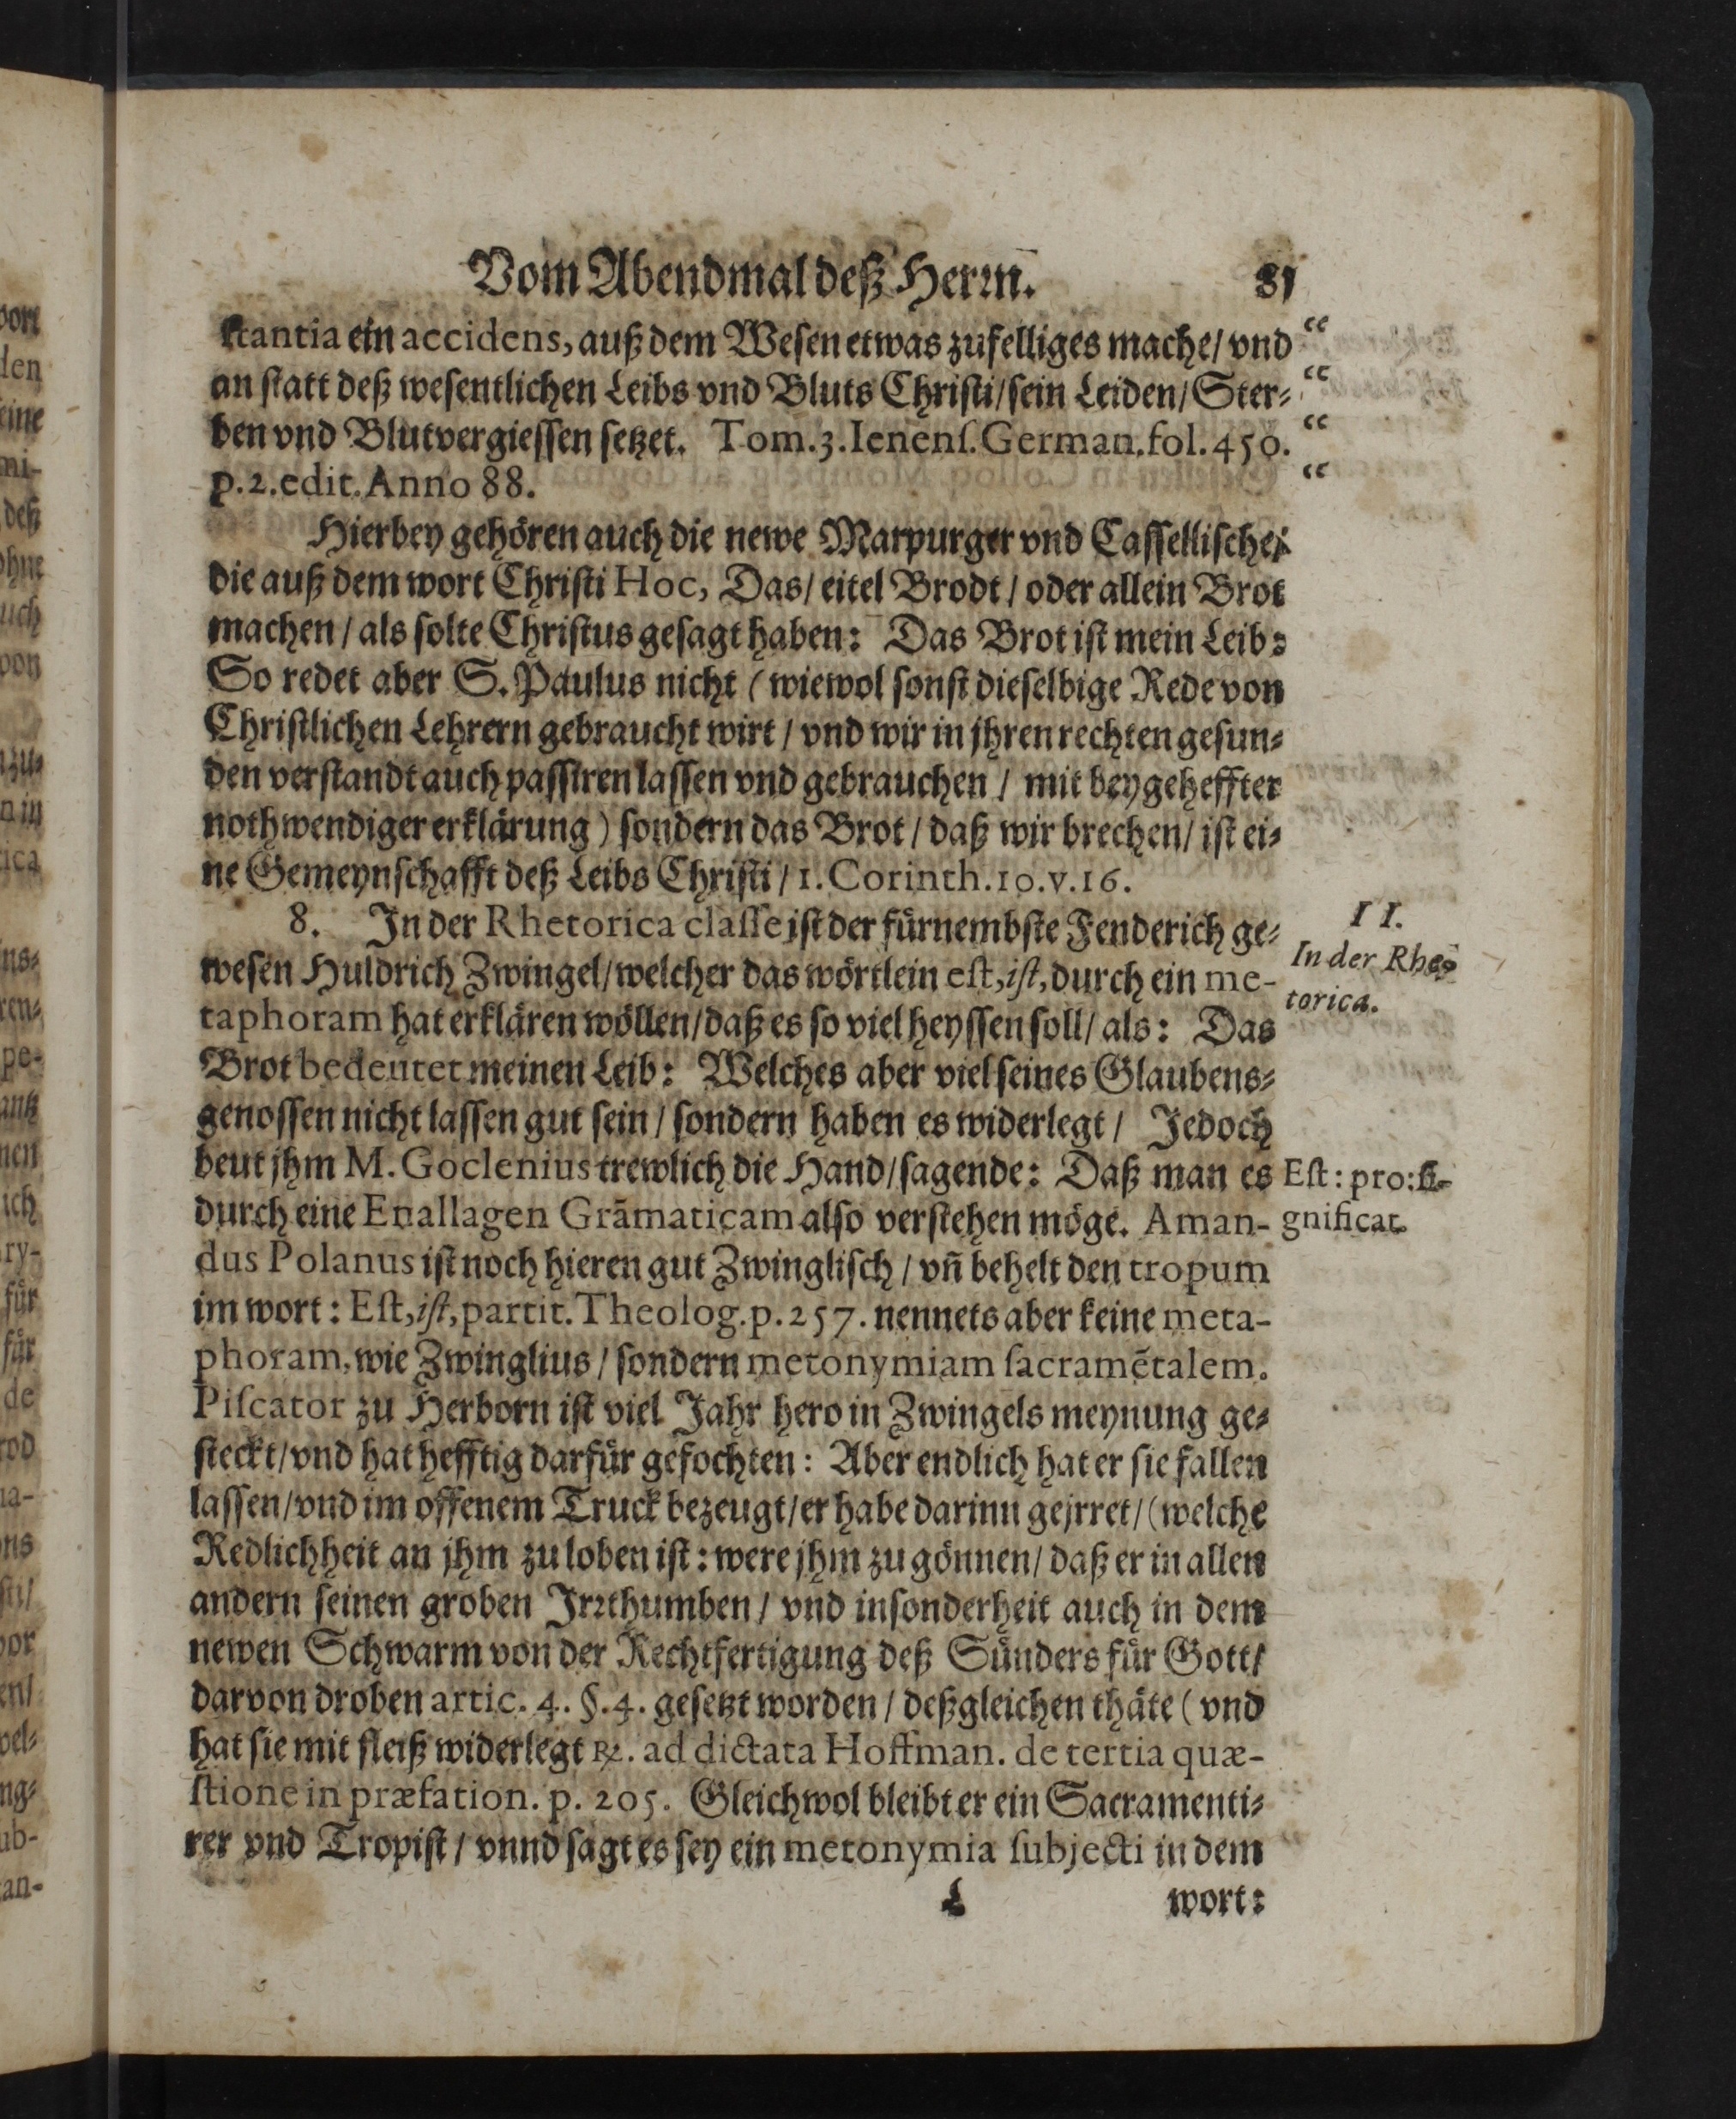 Vom Abendmal deß Herꝛn. 81
stantia ein accidens, auß dem Wesen etwas zufelliges mache/ vnd “
an statt deß wesentlichen Leibs vnd Bluts Christi/ sein Leiden/ Ster⸗ “
ben vnd Blutvergiessen setzet. Tom.3.Ienenſ.German.fol.450. “
p.2.edit.Anno 88. “
Hierbey gehören auch die newe Marpurger vnd Cassellische/
die auß dem wort Christi Hoc, Das/ eitel Brodt/ oder allein Brot
machen/ als solte Christus gesagt haben: Das Brot ist mein Leib:
So redet aber S. Paulus nicht (wiewol sonst dieselbige Rede von
Christlichen Lehrern gebraucht wirt/ vnd wir in jhren rechten gesun⸗
den verstandt auch passiren lassen vnd gebrauchen/ mit beygeheffter
nothwendiger erklärung) sondern das Brot/ daß wir brechen/ ist ei⸗
ne Gemeynschafft deß Leibs Christi/ 1. Corinth.10.v.16.
8. In der Rhetorica classe ist der fürnembste Fenderich ge⸗
wesen Huldrich Zwingel/ welcher das wörtlein est, ist, durch ein me-
taphoram hat erklären wöllen/ daß es so viel heyssen soll/ als: Das
Brot bedeutet meinen Leib: Welches aber viel seines Glaubens⸗
genossen nicht lassen gut sein/ sondern haben es widerlegt/ Jedoch
beut jhm M. Goclenius trewlich die Hand/ sagende: Daß man es
durch eine Enallagen Grāmaticam also verstehen möge. Aman-
dus Polanus ist noch hieren gut Zwinglisch/ vñ behelt den tropum
im wort: Est, ist, partit. Theolog.p.257. nennets aber keine meta-
phoram, wie Zwinglius/ sondern metonymiam sacramētalem.
Piscator zu Herborn ist viel Jahr hero in Zwingels meynung ge⸗
steckt/ vnd hat hefftig darfür gefochten: Aber endlich hat er sie fallen
lassen/ vnd im offenem Truck bezeugt/ er habe darinn gejrret/ (welche
Redlichheit an jhm zu loben ist: were jhm zu gönnen/ daß er in allen
andern seinen groben Irꝛthumben/ vnd insonderheit auch in dem
newen Schwarm von der Rechtfertigung deß Sünders für Gott/
darvon droben artic. 4. §.4. gesetzt worden/ deßgleichen thäte (vnd
hat sie mit fleiß widerlegt ℞. ad dictata Hoffman. de tertia quæ-
stione in præfation. p. 205. Gleichwol bleibt er ein Sacramenti⸗
rer vnd Tropist/ vnnd sagt es sey ein metonymia subjecti in dem
L wort:
II.
In der Rhe⸗
torica.
Est: pro: si-
gnificat.